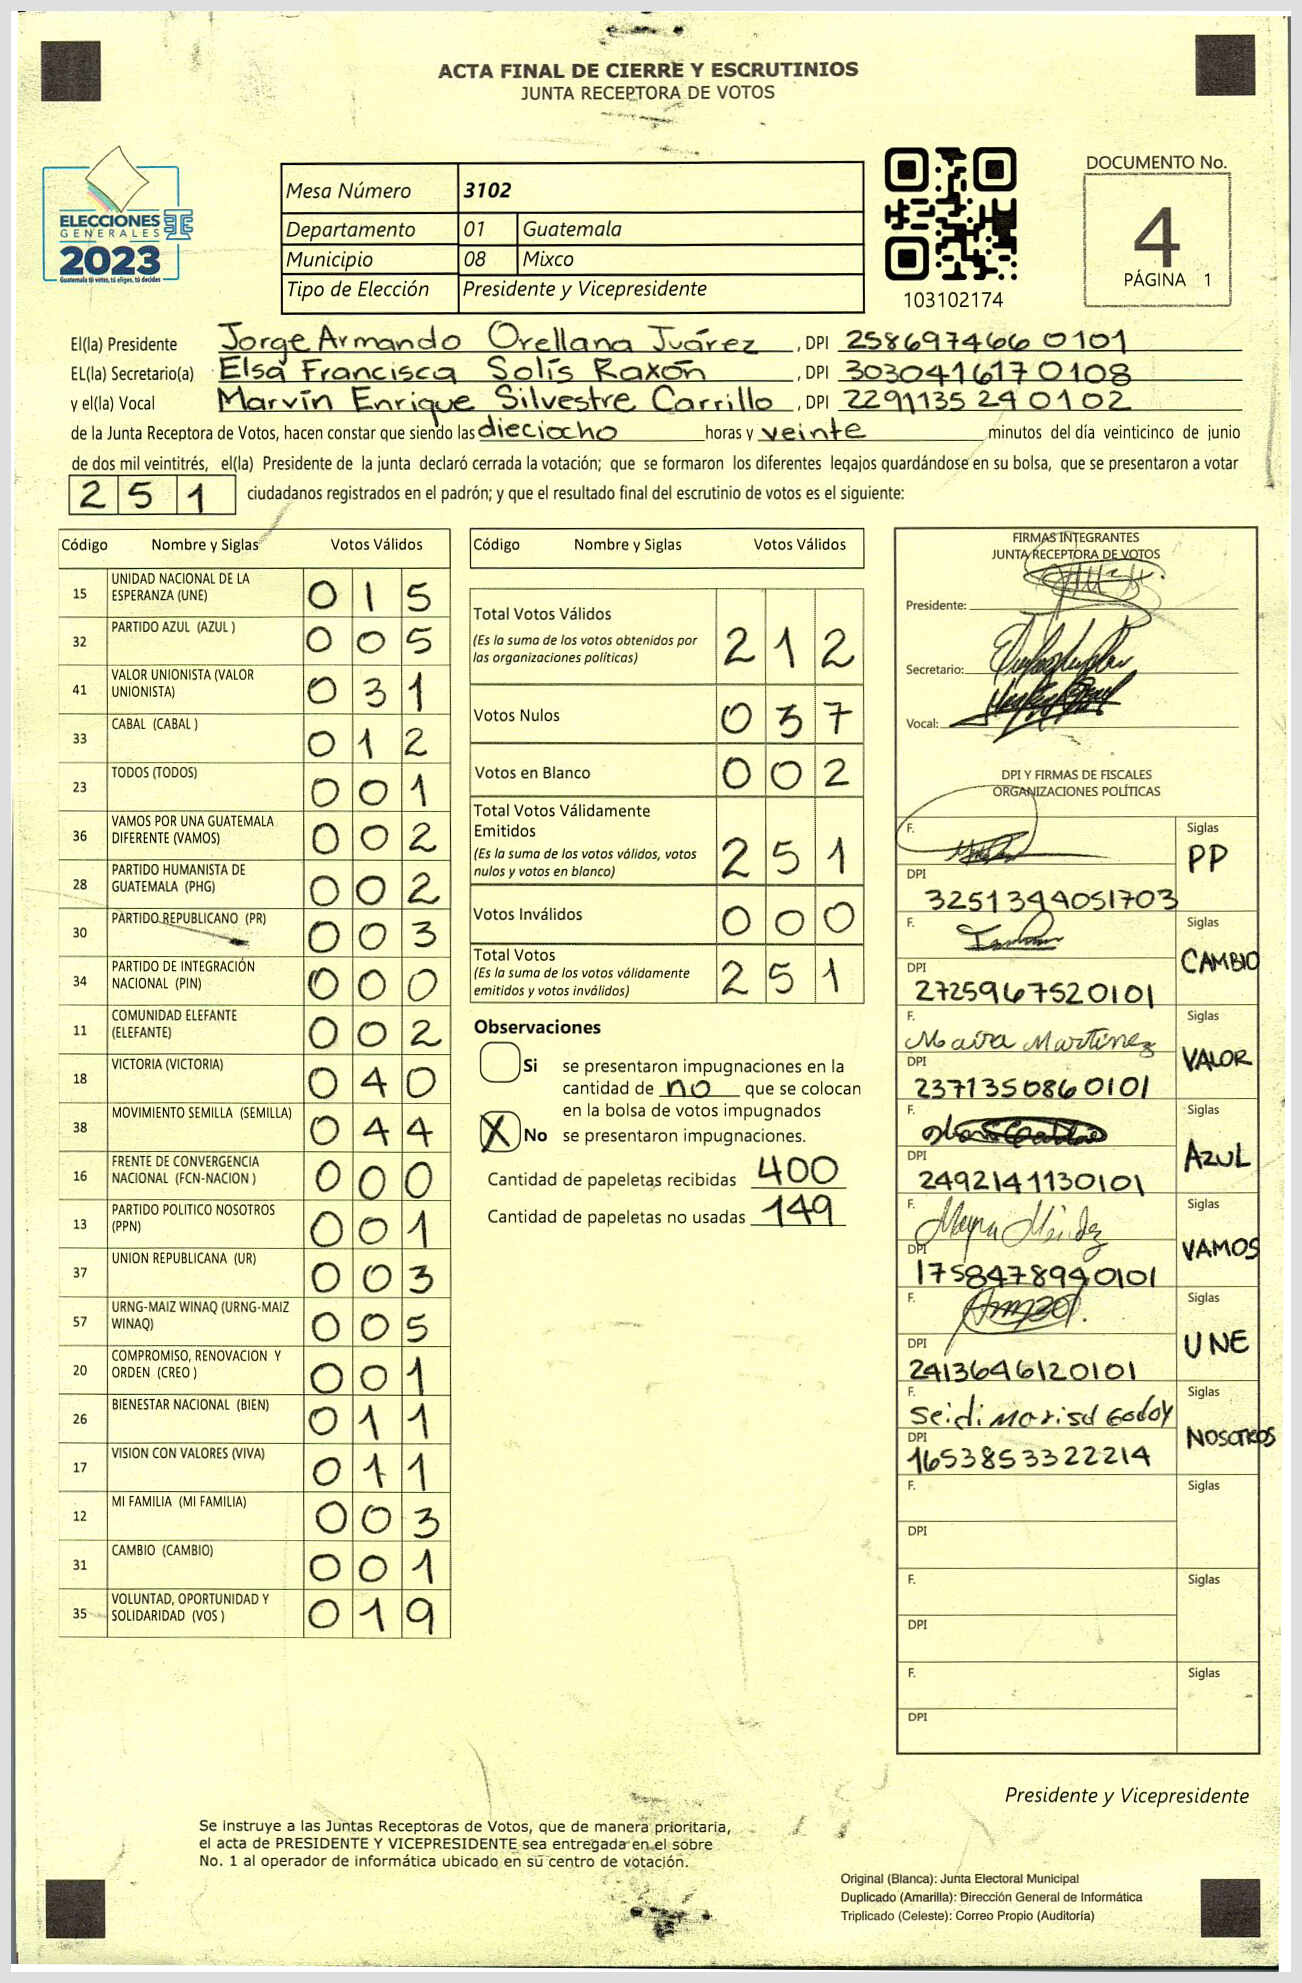 ACTA FINAL DE CIERRE Y ESCRUTINIOS
JUNTA RECEPTORA DE VOTOS
ELECCIONES
GENERALES
2023
Guatemala tú votas, tú eliges, tú decides
Mesa Número 3102
Departamento 01 Guatemala
Municipio 08 Mixco
Tipo de Elección Presidente y Vicepresidente
103102174
DOCUMENTO No.
4
PÁGINA 1
El(la) Presidente Jorge Armando Orellana Juárez, DPI 258697466 0101
EL(la) Secretario(a) Elsa Francisca Solís Raxón, DPI 303041617 0108
y el(la) Vocal Marvín Enrique Silvestre Carrillo, DPI 2291135 24 0102
de la Junta Receptora de Votos, hacen constar que siendo las dieciocho horas y veinte minutos del día veinticinco de junio
de dos mil veintitrés, el(la) Presidente de la junta declaró cerrada la votación; que se formaron los diferentes legajos guardándose en su bolsa, que se presentaron a votar
251 ciudadanos registrados en el padrón; y que el resultado final del escrutinio de votos es el siguiente:
Código Nombre y Siglas Votos Válidos
15 UNIDAD NACIONAL DE LA ESPERANZA (UNE) 015
32 PARTIDO AZUL (AZUL ) 005
41 VALOR UNIONISTA (VALOR UNIONISTA) 031
33 CABAL (CABAL ) 012
23 TODOS (TODOS) 001
36 VAMOS POR UNA GUATEMALA DIFERENTE (VAMOS) 002
28 PARTIDO HUMANISTA DE GUATEMALA (PHG) 002
30 PARTIDO REPUBLICANO (PR) 003
34 PARTIDO DE INTEGRACIÓN NACIONAL (PIN) 000
11 COMUNIDAD ELEFANTE (ELEFANTE) 002
18 VICTORIA (VICTORIA) 040
38 MOVIMIENTO SEMILLA (SEMILLA) 044
16 FRENTE DE CONVERGENCIA NACIONAL (FCN-NACION ) 000
13 PARTIDO POLITICO NOSOTROS (PPN) 001
37 UNION REPUBLICANA (UR) 003
57 URNG-MAIZ WINAQ (URNG-MAIZ WINAQ) 005
20 COMPROMISO, RENOVACION Y ORDEN (CREO ) 001
26 BIENESTAR NACIONAL (BIEN) 011
17 VISION CON VALORES (VIVA) 011
12 MI FAMILIA (MI FAMILIA) 003
31 CAMBIO (CAMBIO) 001
35 VOLUNTAD, OPORTUNIDAD Y SOLIDARIDAD (VOS ) 019
Código Nombre y Siglas Votos Válidos
Total Votos Válidos 212
(Es la suma de los votos obtenidos por
las organizaciones políticas)
Votos Nulos 037
Votos en Blanco 002
Total Votos Válidamente
Emitidos 251
(Es la suma de los votos válidos, votos
nulos y votos en blanco)
Votos Inválidos 000
Total Votos 251
(Es la suma de los votos válidamente
emitidos y votos inválidos)
Observaciones
Si se presentaron impugnaciones en la
cantidad de no que se colocan
en la bolsa de votos impugnados
X No se presentaron impugnaciones.
Cantidad de papeletas recibidas 400
Cantidad de papeletas no usadas 149
FIRMAS INTEGRANTES
JUNTA RECEPTORA DE VOTOS
Presidente:
Secretario:
Vocal:
DPI Y FIRMAS DE FISCALES
ORGANIZACIONES POLÍTICAS
F. Siglas PP
DPI 3251344051703
F. Siglas CAMBIO
DPI 2725967520101
F. Maira Martinez Siglas VALOR
DPI 2371350860101
F. Siglas AZUL
DPI 2492141130101
F. Mayra Méndez Siglas VAMOS
DPI 1758478940101
F. Siglas UNE
DPI 2413646120101
F. Seidi Marisol Godoy Siglas NOSOTROS
DPI 1653853322214
F. Siglas
DPI
F. Siglas
DPI
F. Siglas
DPI
Presidente y Vicepresidente
Se instruye a las Juntas Receptoras de Votos, que de manera prioritaria,
el acta de PRESIDENTE Y VICEPRESIDENTE sea entregada en el sobre
No. 1 al operador de informática ubicado en su centro de votación.
Original (Blanca): Junta Electoral Municipal
Duplicado (Amarilla): Dirección General de Informática
Triplicado (Celeste): Correo Propio (Auditoría)